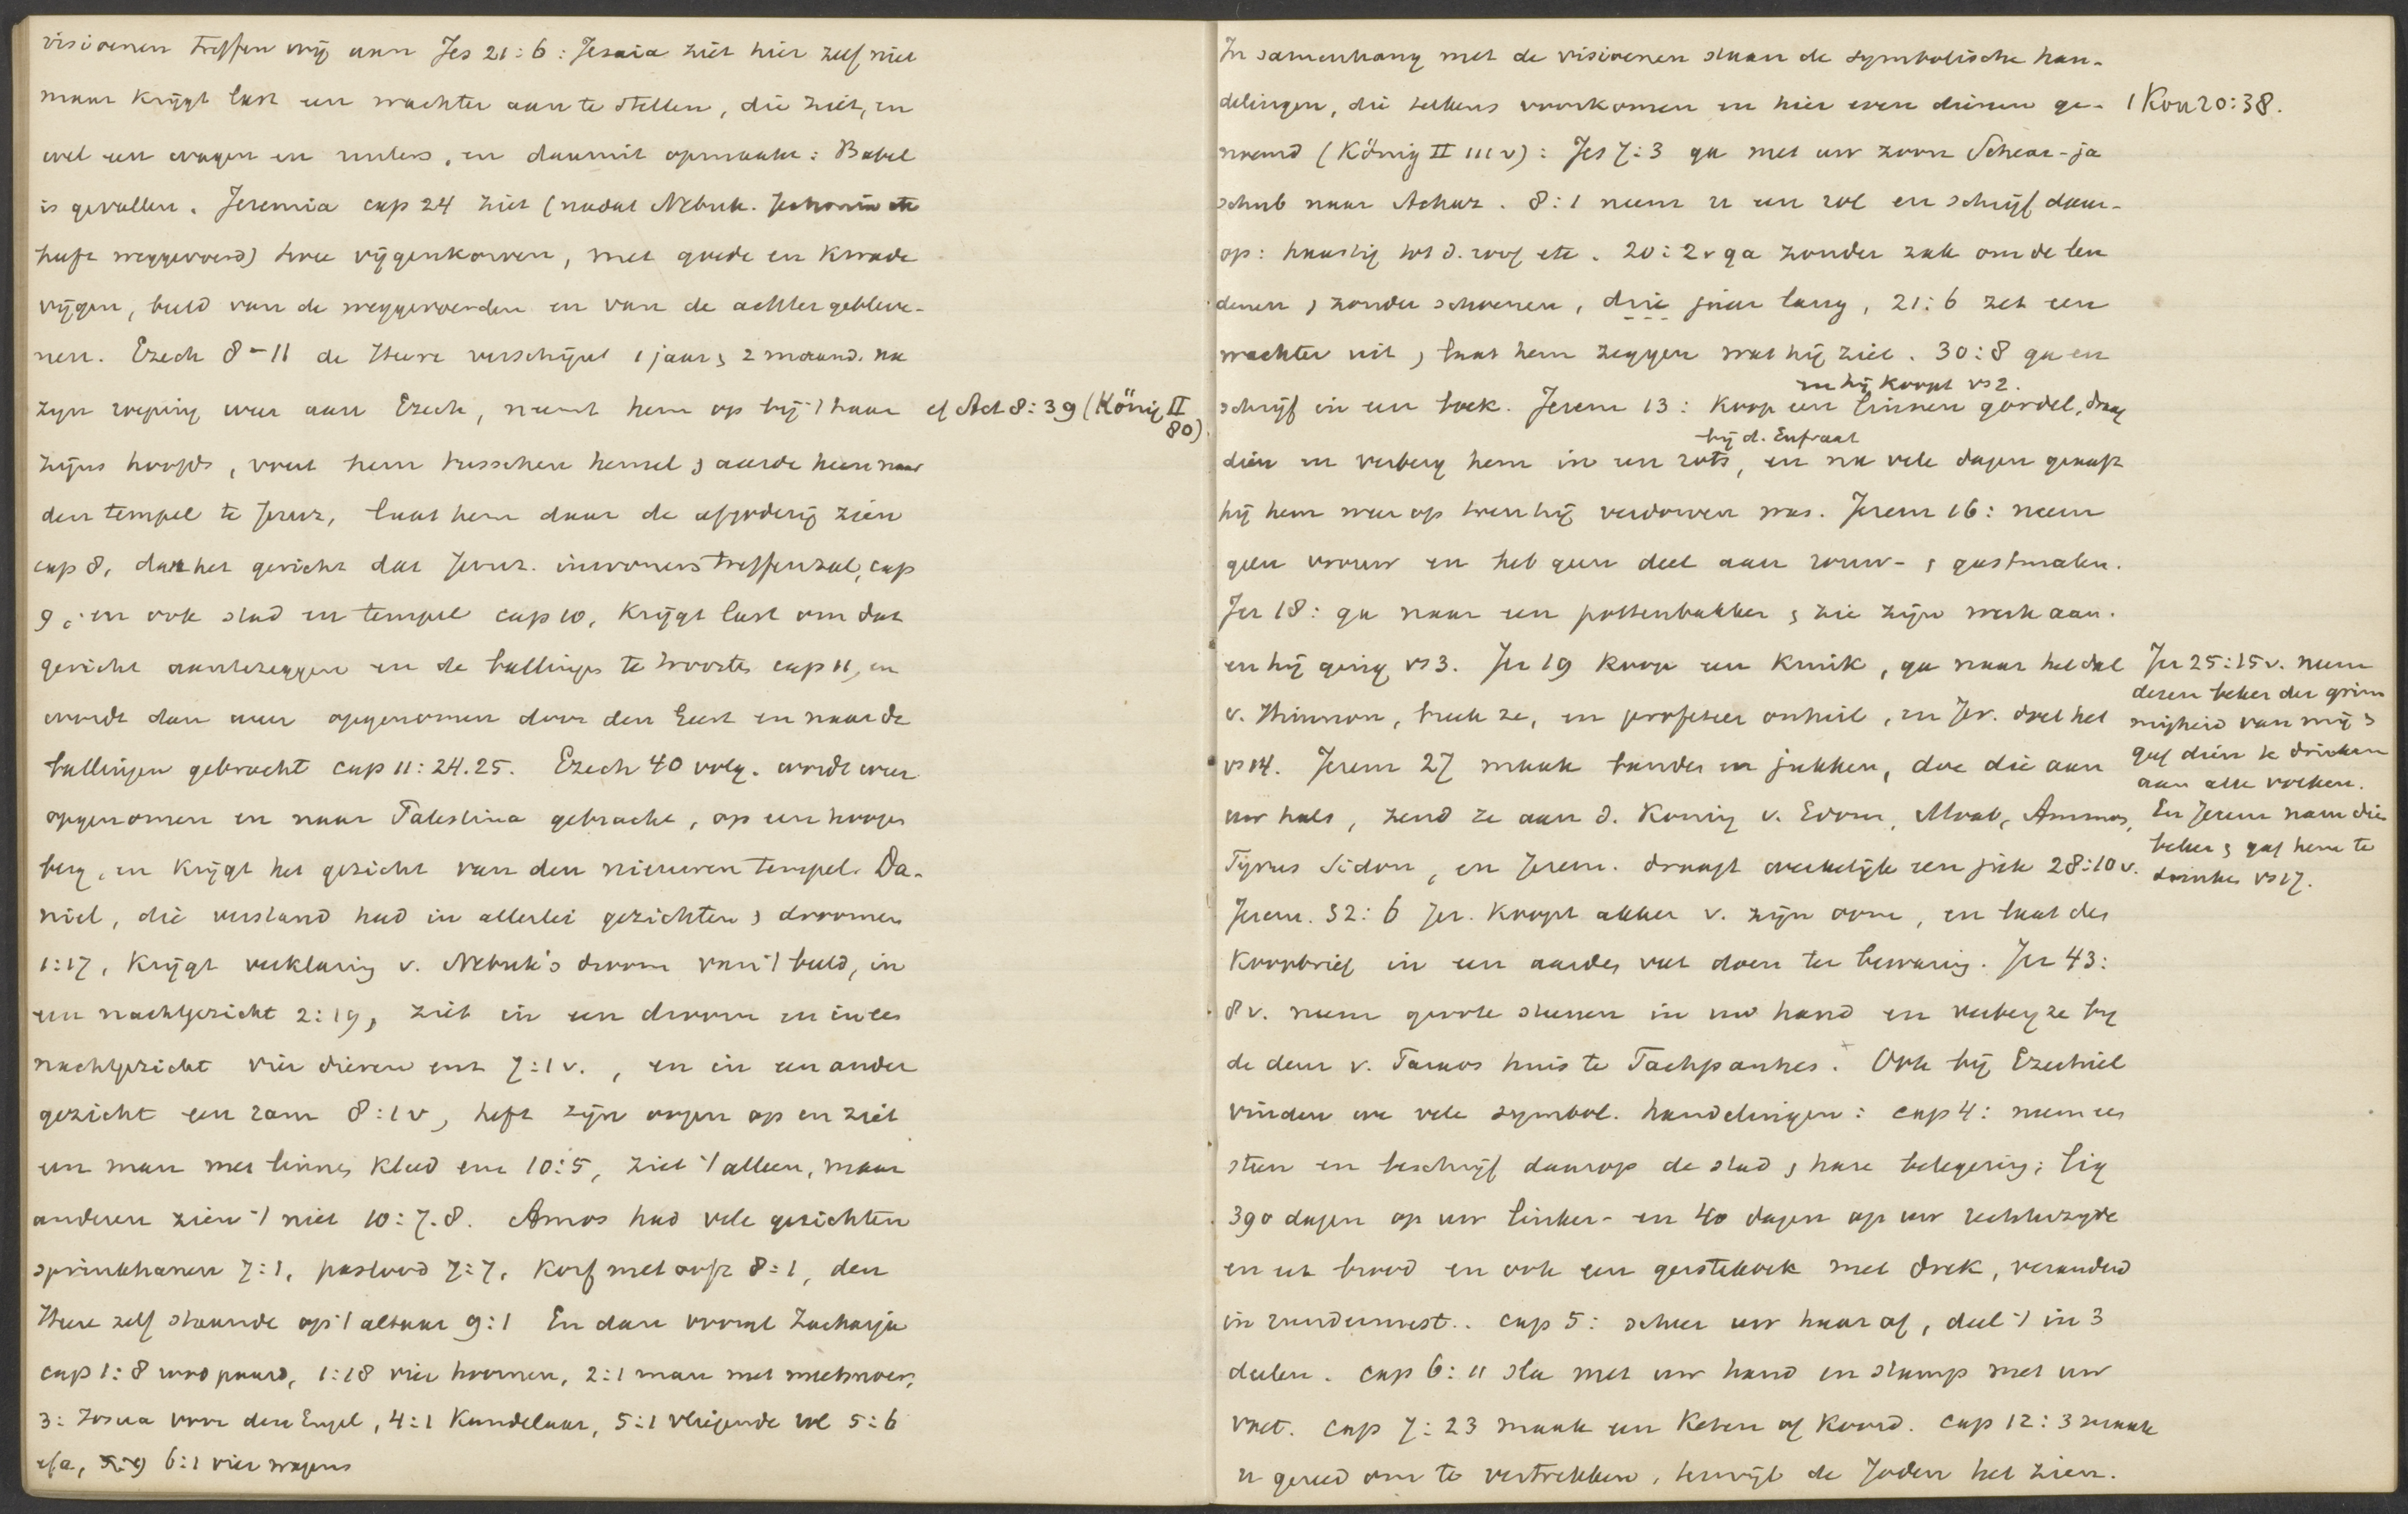 visioenen treffen wij aan Jes 21:6: Jesaia ziet hier zelf niet
maar krijgt last een wachter aan te stellen, die ziet, en
wel een wagen en ruiters, en daaruit opmaakt: Babel
is gevallen. Jeremia cap 24 ziet (nadat Nebuk. Jechonia etc
heeft weggevoerd) twee vijgenkorven, met goede en kwade
vijgen, beeld van de weggevoerden en van de achtergebleve-
nen. Ezech 8-11 de Heere verschijnt 1 jaar & 2 maand. na
zijn roeping weer aan Ezech, neemt hem op bij 't haar
cf Act 8:39 (König II
80)
zijns hoofds, voert hem tusschen hemel & aarde heen naar
den tempel te Jeruz, laat hem daar de afgoderij zien
cap 8, dan het gericht dat Jeruz. inwoners treffen zal, cap
9, en ook stad en tempel cap 10, krijgt last om dat
gericht aantezeggen en de ballingen te troosten cap 11, en
wordt dan weer opgenomen door den Geest en naar de
ballingen gebracht cap 11:24.25. Ezech 40 volg. wordt weer
opgenomen en naar Palestina gebracht, op een hoogen
berg, en krijgt het gezicht van den nieuwen tempel. Da-
niel, die verstand had in allerlei gezichten & droomen
1:17, krijgt verklaring v. Nebuk's droom van 't beeld, in
een nachtgezicht 2:19, ziet in een droom en in een
nachtgezicht vier dieren enz 7:1 v., en in een ander
gezicht een ram 8:1 v, heft zijn oogen op en ziet
een man met linnen kleed enz 10:5, ziet 't alleen, maar
anderen zien 't niet 10:7.8. Amos had vele gezichten
sprinkhanen 7:1, paslood 7:7, korf met ooft 8:1, den
Heere zelf staande op 't altaar 9:1 En dan vooral Zacharja
cap 1:8 rood paard, 1:18 vier hoornen, 2:1 man met meetsnoer,
3: Josua voor den Engel, 4:1 Kandelaar, 5:1 vliegende rol 5:6
efa, 5:9 6:1 vier wagens
In samenhang met de visioenen staan de symbolische han-
delingen, die telkens voorkomen en hier even dienen ge-
1 Kon 20:38.
noemd (König II 111 v): Jes 7:3 ga met uw zoon Schear-ja
schub naar Achaz. 8:1 neem u een rol en schrijf daar-
op: haastig tot d. roof etc. 20:2 v ga zonder zak om de len
denen & zonder schoenen, drie jaar lang, 21:6 zet een
wachter uit & laat hem zeggen wat hij ziet. 30:8 ga en
en hij koopt vs 2.
schrijf in een boek. Jerem 13: koop een linnen gordel, draag
bij d. Eufraat
dien en verberg hem in een rots, en na vele dagen graaft
hij hem weer op wen hij verdorven was. Jerem 16: neem
geen vrouw en heb geen deel aan rouw- & gastmalen.
Jer 18: ga naar een pottenbakker & zie zijn werk aan.
en hij ging vs 3. Jer 19 koop een kruik, ga naar het dal
v. Hinnom, breek ze, en profeteer onheil, en Jer. doet het
vs 14. Jerem 27 maak banden en jukken, doe die aan
uw hals, zend ze aan d. koning v. Edom, Moab, Ammon,
Tyrus Sidon, en Jerem. draagt werkelijk een juk 28:10 v.
Jer 25:15 v. neem
dezen beker der grim
migheid van mij &
geef dien te drinken
aan alle volken.
En Jerem nam dien
beker & gaf hem te
drinken vs 17.
Jerem. 32:6 Jer. koopt akker v. zijn oom, en laat den
koopbrief in een aarden vat doen ter bewaring. Jer 43:
8 v. neem groote steenen in uw hand en verberg ze bij
de deur v. Faraos huis te Tachpanhes. Ook bij Ezechiel
vinden we vele symbol. handelingen: cap 4: neem een
steen en beschrijf daarop de stad & hare belegering; lig
390 dagen op uw linker- en 40 dagen op uw rechterzijde
en eet brood en ook een gerstekoek met drek, veranderd
in rundermest. cap 5: scheer uw haar af, deel 't in 3
deelen. cap 6:11 sla met uw hand en stamp met uw
voet. cap 7:23 maak een keten of koord. cap 12:3 maak
u gereed om te vertrekken, terwijl de Joden het zien.